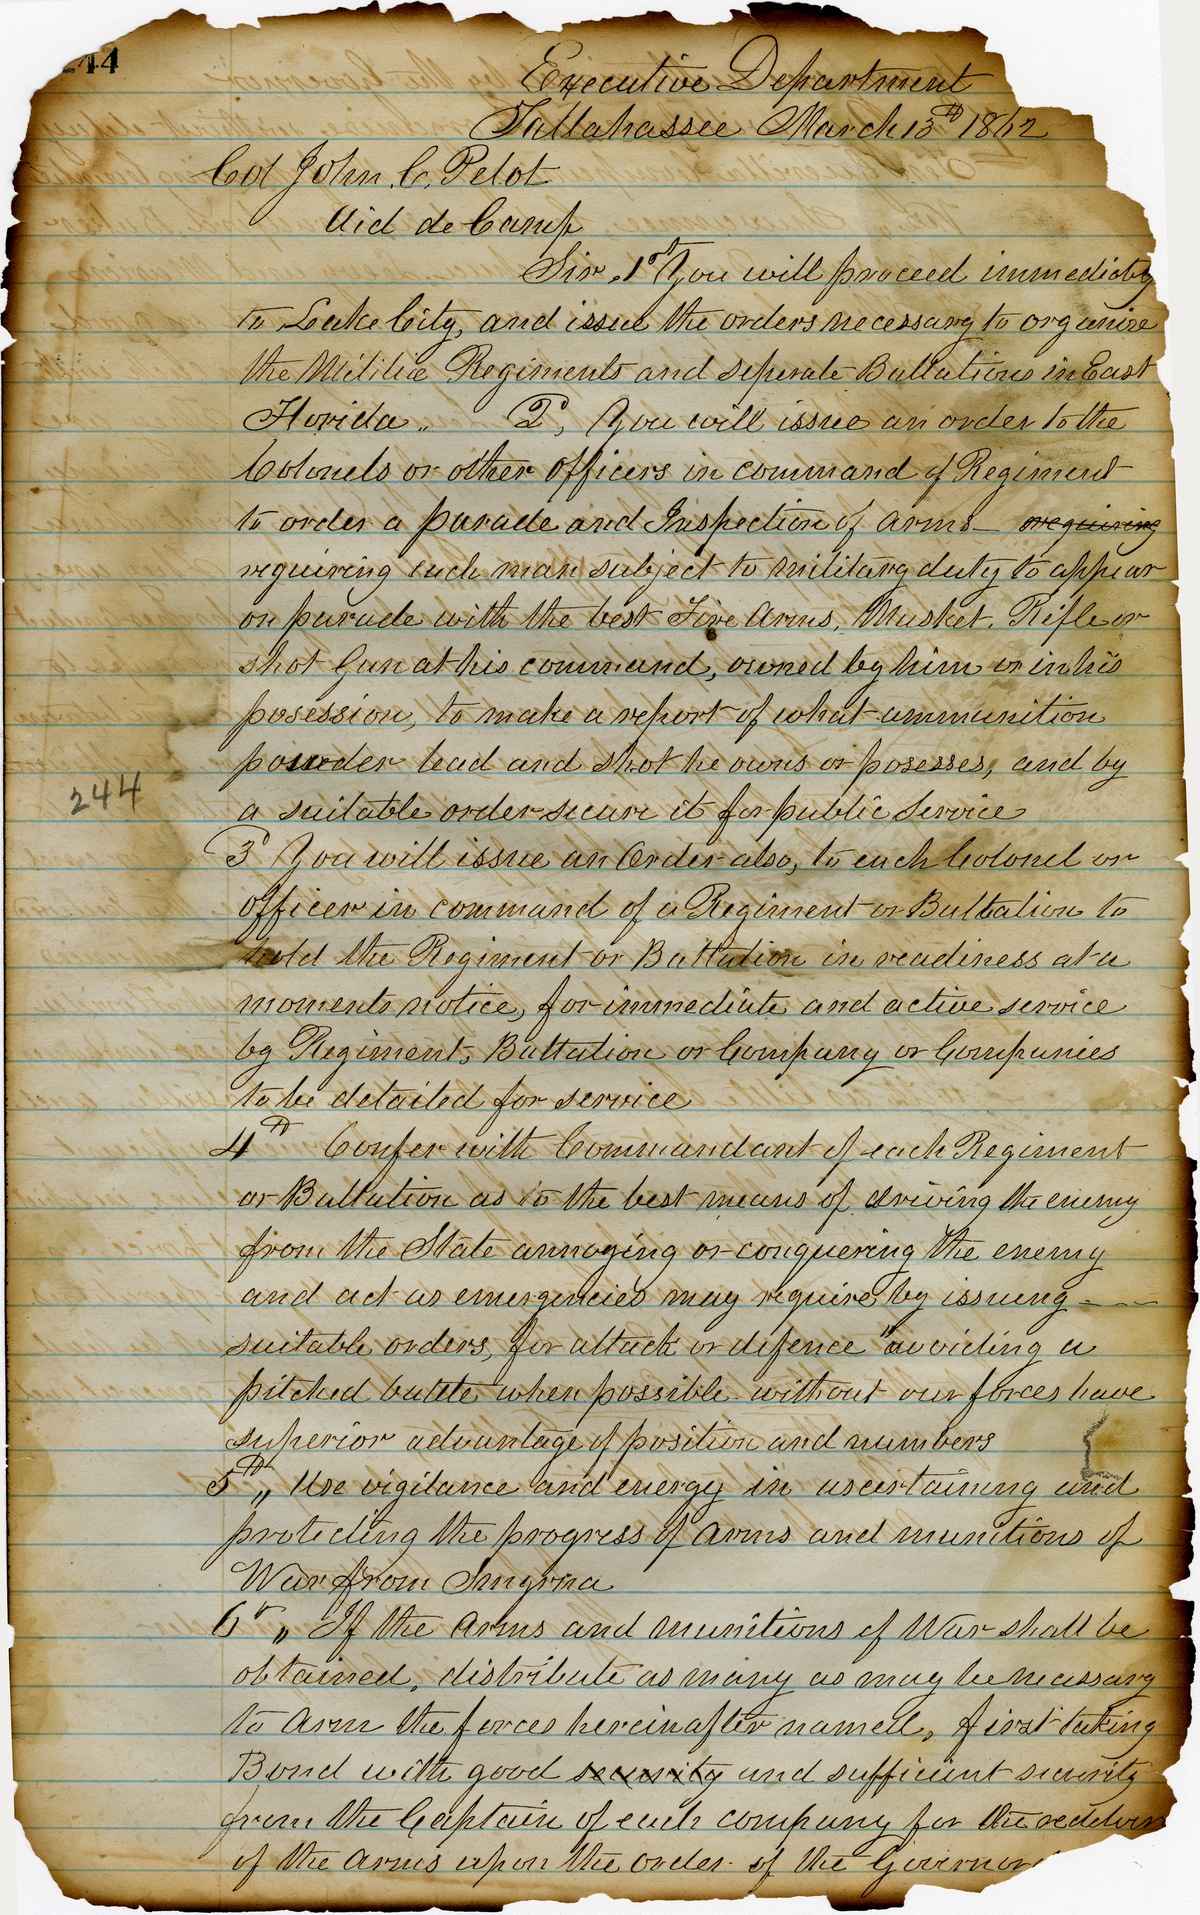 244
Executive Department
Tallahassee March 13th 1862
Col John. C. Pelot
Aid de Camp
Sir. 1st You will proceed immediatly
to Lake City, and issue the orders necessary to organize
the Militia Regiments and seperate Battalions in East
Florida „ 2d, You will issue an order to the
Colonels or other officers in command of Regiment
to order a parade and Inspection of arms – requiring
requiring each man subject to military duty to appear
on parade with the best Fire Arms, Musket, Rifle or
shot Gun at his command, owned by him or in his
posession, to make a report of what ammunition
powder lead and shot he owns or posesses, and by
a suitable order secure it for public Service
3d You will issue an Order also, to each Colonel or
officer in command of a Regiment or Battalion to
hold the Regiment or Battalion in readiness at a
moments notice, for immediate and active service
by Regiment, Battalion or Company or Companies
to be detailed for service
244
4th Confer with Commandant of each Regiment
or Battalion as to the best means of driving the enemy
from the State annoying or conquering the enemy
and act as emergencies may require, by issuing – – –
suitable orders, for attack or defence "avoiding a
pitched battle when possible without our forces have
superior advantage of position and numbers
5th „ Use vigilance and energy in ascertaining and
protecting the progress of arms and munitions of
War from Smyrna
6th „ If the Arms and munitions of War shall be
obtained, distribute as many as may be necessary
to Arm the forces hereinafter named, first taking
Bond with good security and sufficient security
from the Captain of each company for the
of the Arms upon the order of the Governor